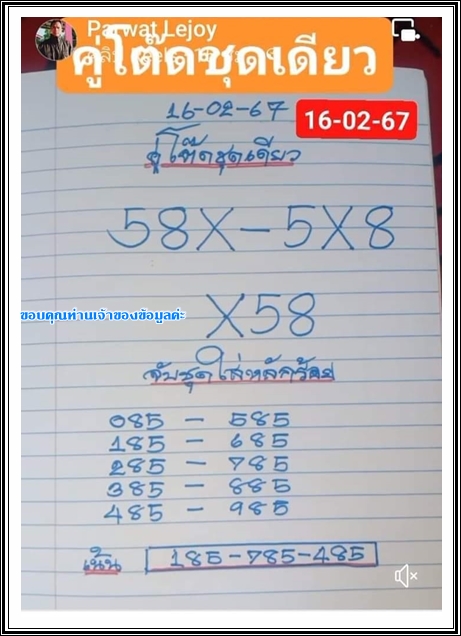 Parwat Lejoy
คู่โต๊ดชุดเดียว
16-02-67
16-02-67
คู่โต๊ดชุดเดียว
58X-5X8
ขอบคุณท่านเจ้าของข้อมูลค่ะ
X58
จับชุดใส่หลักร้อย
085 - 585
185 - 685
285 - 785
385 - 885
485 - 985
เน้น 185-785-485